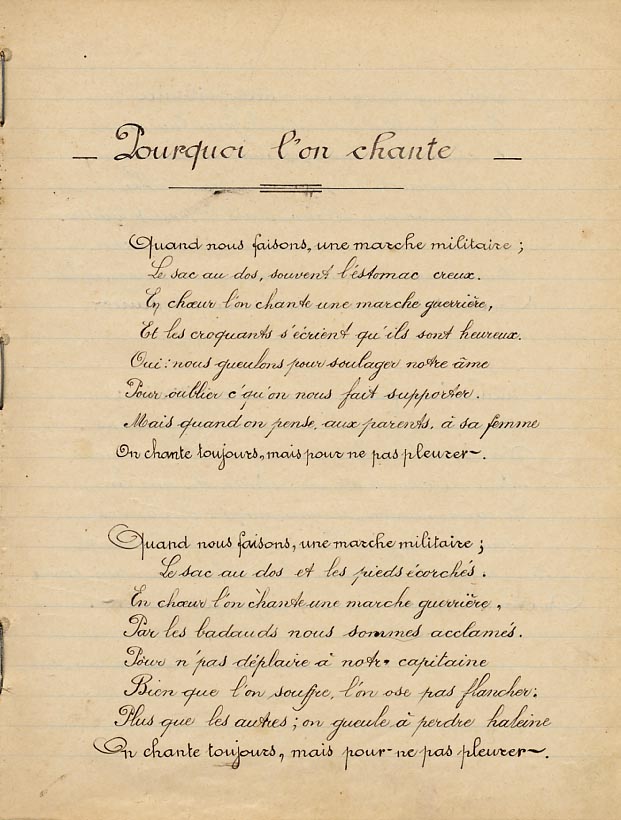 — Pourquoi l'on chante —
Quand nous faisons, une marche militaire ;
Le sac au dos, souvent l'éstomac creux.
En chœur l'on chante une marche guerrière,
Et les croquants s'écrient qu'ils sont heureux.
Oui : nous gueulons pour soulager notre âme
Pour oublier c'qu'on nous fait supporter.
Mais quand on pense, aux parents, à sa femme
On chante toujours, mais pour ne pas pleurer~.
Quand nous faisons, une marche militaire ;
Le sac au dos et les pieds écorchés.
En chœur l'on chante une marche guerrière,
Par les badauds nous sommes acclamés.
Pour n'pas déplaire à notre capitaine
Bien que l'on souffre, l'on ose pas flancher.
Plus que les autres ; on gueule à perdre haleine
On chante toujours, mais pour ne pas pleurer~.